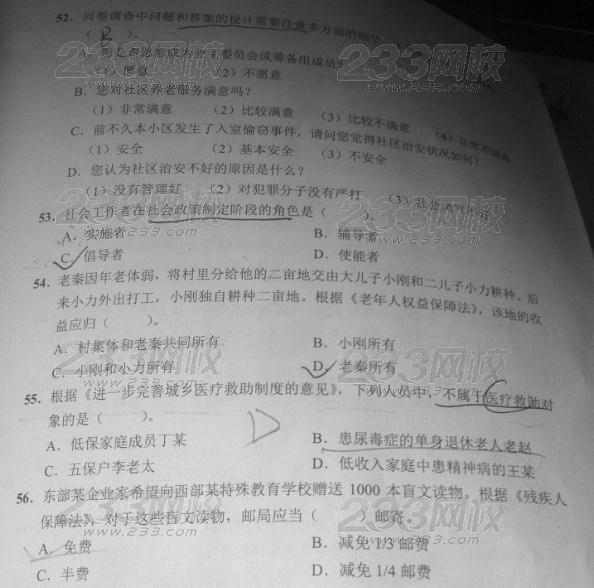 52. 问卷调查中问题和答案的设计需要注意多方面的细节
( B )。
A. 您是否愿意成为业主委员会或筹备组成员?
(1)愿意 (2)不愿意
B. 您对社区养老服务满意吗?
(1)非常满意 (2)比较满意 (3)比较不满意 (4)非常不满意
C. 前不久本小区发生了入室偷窃事件,请问您觉得社区治安状况如何?
(1)安全 (2)基本安全 (3)不安全
D. 您认为社区治安不好的原因是什么?
(1)没有管理好 (2)对犯罪分子没有严打 (3)社会风气不好
53. 社会工作者在社会政策制定阶段的角色是( )。
A. 实施者 B. 辅导者
C. 倡导者 D. 使能者
54. 老秦因年老体弱,将村里分给他的二亩地交由大儿子小刚和二儿子小力耕种。后
来小力外出打工,小刚独自耕种二亩地。根据《老年人权益保障法》,该地的收
益应归( )。
A. 村集体和老秦共同所有 B. 小刚所有
C. 小刚和小力所有 D. 老秦所有
55. 根据《进一步完善城乡医疗救助制度的意见》,下列人员中,不属于医疗救助对
象的是( )。 D
A. 低保家庭成员丁某 B. 患尿毒症的单身退休老人老赵
C. 五保户李老太 D. 低收入家庭中患精神病的王某
56. 东部某企业家希望向西部某特殊教育学校赠送 1000 本盲文读物。根据《残疾人
保障法》,对于这些盲文读物,邮局应当( )邮寄。
A. 免费 B. 减免 1/3 邮费
C. 半费 D. 减免 1/4 邮费
233网校
www.233.com